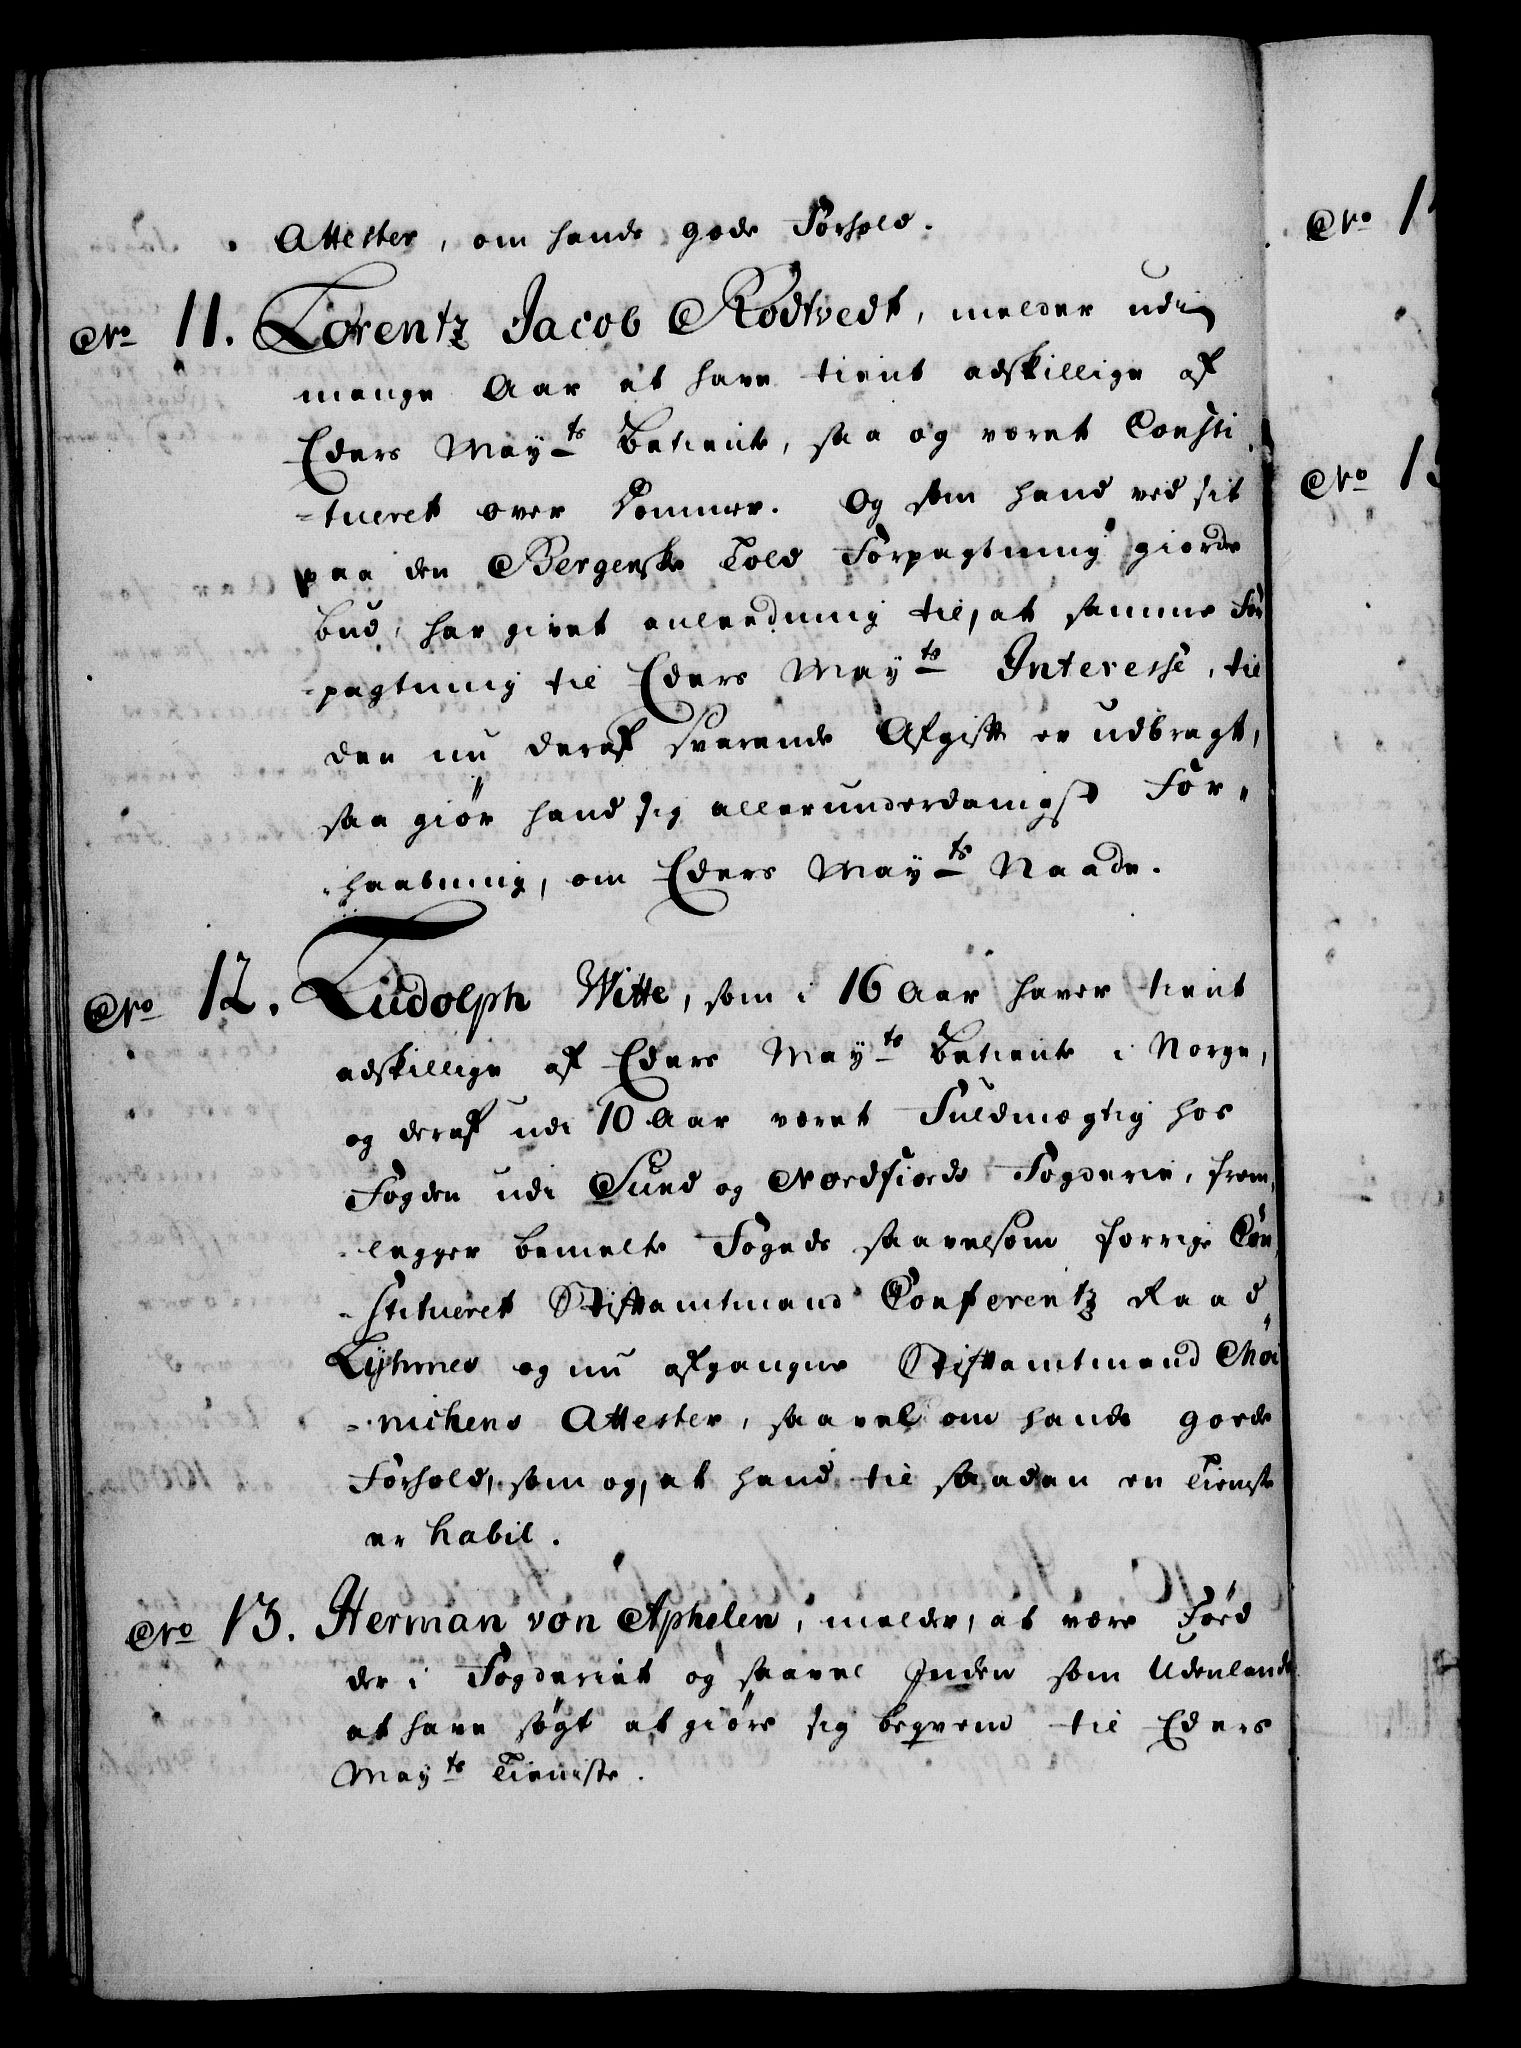 Attester, om hands gode Forhold.
No 11. Lorentz Jacob Rødtvedt, melder udi
mange Aar at have tient adskillige af
Eders Mayts Betiente, saa og været Consti
-tueret over Dommer. Og som hand ved sit
paa den Bergenske Told Forpagtning giorde
bud, har givet anleedning til, at samme For
-pagtning til Eders Mayts Interesse, til
den nu deraf svarende Afgift er udbragt,
saa giør hand sig allerunderdanigst For-
haabning, om Eders Mayts Naade.
No 12. Ludolph Witte, som i 16 Aar haver tient
adskillige af Eders Mayts Betiente i Norge,
og deraf udi 10 Aar været Fuldmægtig hos
Fogden udi Sund og Nordfiords Fogderie, frem-
-legger bemelte Fogeds saavelsom forrige Con
-stitueret Stiftamtmand Conferentz Raad
Lyhmes og nu afgangne Stiftamtmand Möi
-nichens Attester, saavel om hands goede
Forhold, som og, at hand til saadan en Tieniste
er habil.
No 13. Herman von Aphelen, melder, at være Föed
der i Fogderiet og saavel Inden som Udenlands
at have søgt at giøre sig beqvem til Eders
Mayts Tieniste.
No 1
No 15